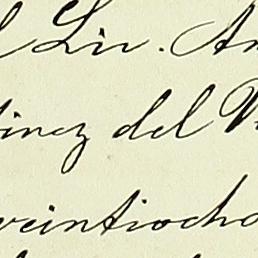 Liv. An
inez del V
veintiocho